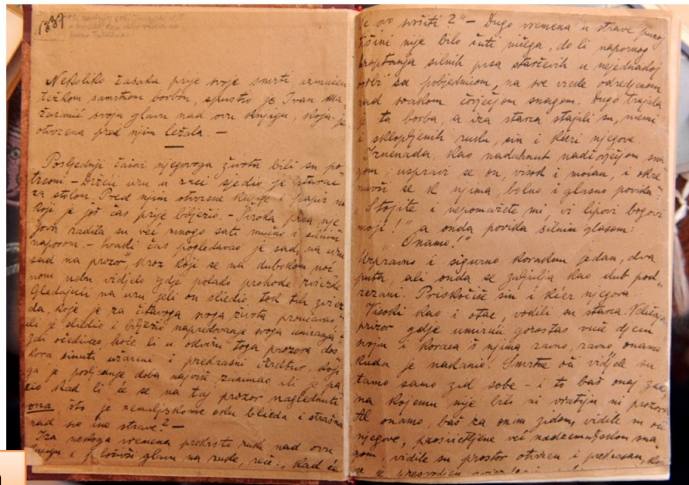 1887
Nekoliko časaka prije svoje smrti izmučen
teškom samrtnom borbom, spustio je Ivan
svoju glavu nad ovu knjigu, koja je
otvorena pred njim ležala —
Posljednji časovi njegovoga života bili su
— Držeć uru u ruci sjedio je starac
za stolom. Pred njim otvorene knjige i papir na
koji je još čas prije bilježio. — Široka prsa nje
gova radila su već mnogo sati mučno i silnim
naporom. — Svaki čas pogledavao je sad na uru
sad na prozor kroz koji se na dubokom noć
nom nebu vidjelo gdje polako prohode zvijezde
Gledajući na uru jeli on sliedio tok tih zvijez
da, koje je za čitavoga svoga života proučavao
ili je sliedio i bilježio napredovanje svoga umiranja?
Ili očekivao, hoće li u odviru toga prozora
sinuti užareni i predrasni
ga je posljednje doba najviše zanimao ili je pa
zio kad li će se na taj prozor nagledniti
ona što je zemaljskome oku blieda i strašna
nad sve ine strave? —
Iza nekoga vremena prekrsti ruke nad ovu
knjigu i položivši glavu na ruke, reče: "Kad će
je ov svršiti?" — Dugo vremena u strave punoj
tišini nije bilo čuti ničega, do li napornog
silnih prsa starčevih u nejednakoj
borbi sa pobjednicom, na sve vieke određenom
nad svakom čovječjom snagom. Dugo trajala
je ta borba, a iza starca stajali su, niemi
i sklopljenih ruku, sin i kćeri njegove.
Iznenada, kao nadahnut nadčovječjom sna
gom, uspravi se on, visok i moćan, i okre
nuvši se k njima, bolno i glasno poviknu
"Stojite i nepomažete mi, vi lipovi bogovi
moji!" a onda poviknu silnim glasom:
"Onamo!"
i sigurno korakom jedan, dva
puta, ali onda se zaljulja kao dub pod
rezani. Priskočiše sin i kćeri njegova
Visoki kao i otac, vodili su starca.
prizor gdje umirući gorostas viče djeci
svojoj i koraca s njima ravno, ravno onamo
kuda je nastrano. Smrtne oči vidjele su
tamo samo zid sobe — i to baš onaj zid
na kojemu nije bilo ni vratiju ni prozora
Al onamo, baš za onim zidom, vidile su oči
njegove, prosvietljene već nadzemaljskom sna
gom, vidile su prostor otvoren i prekrasan,